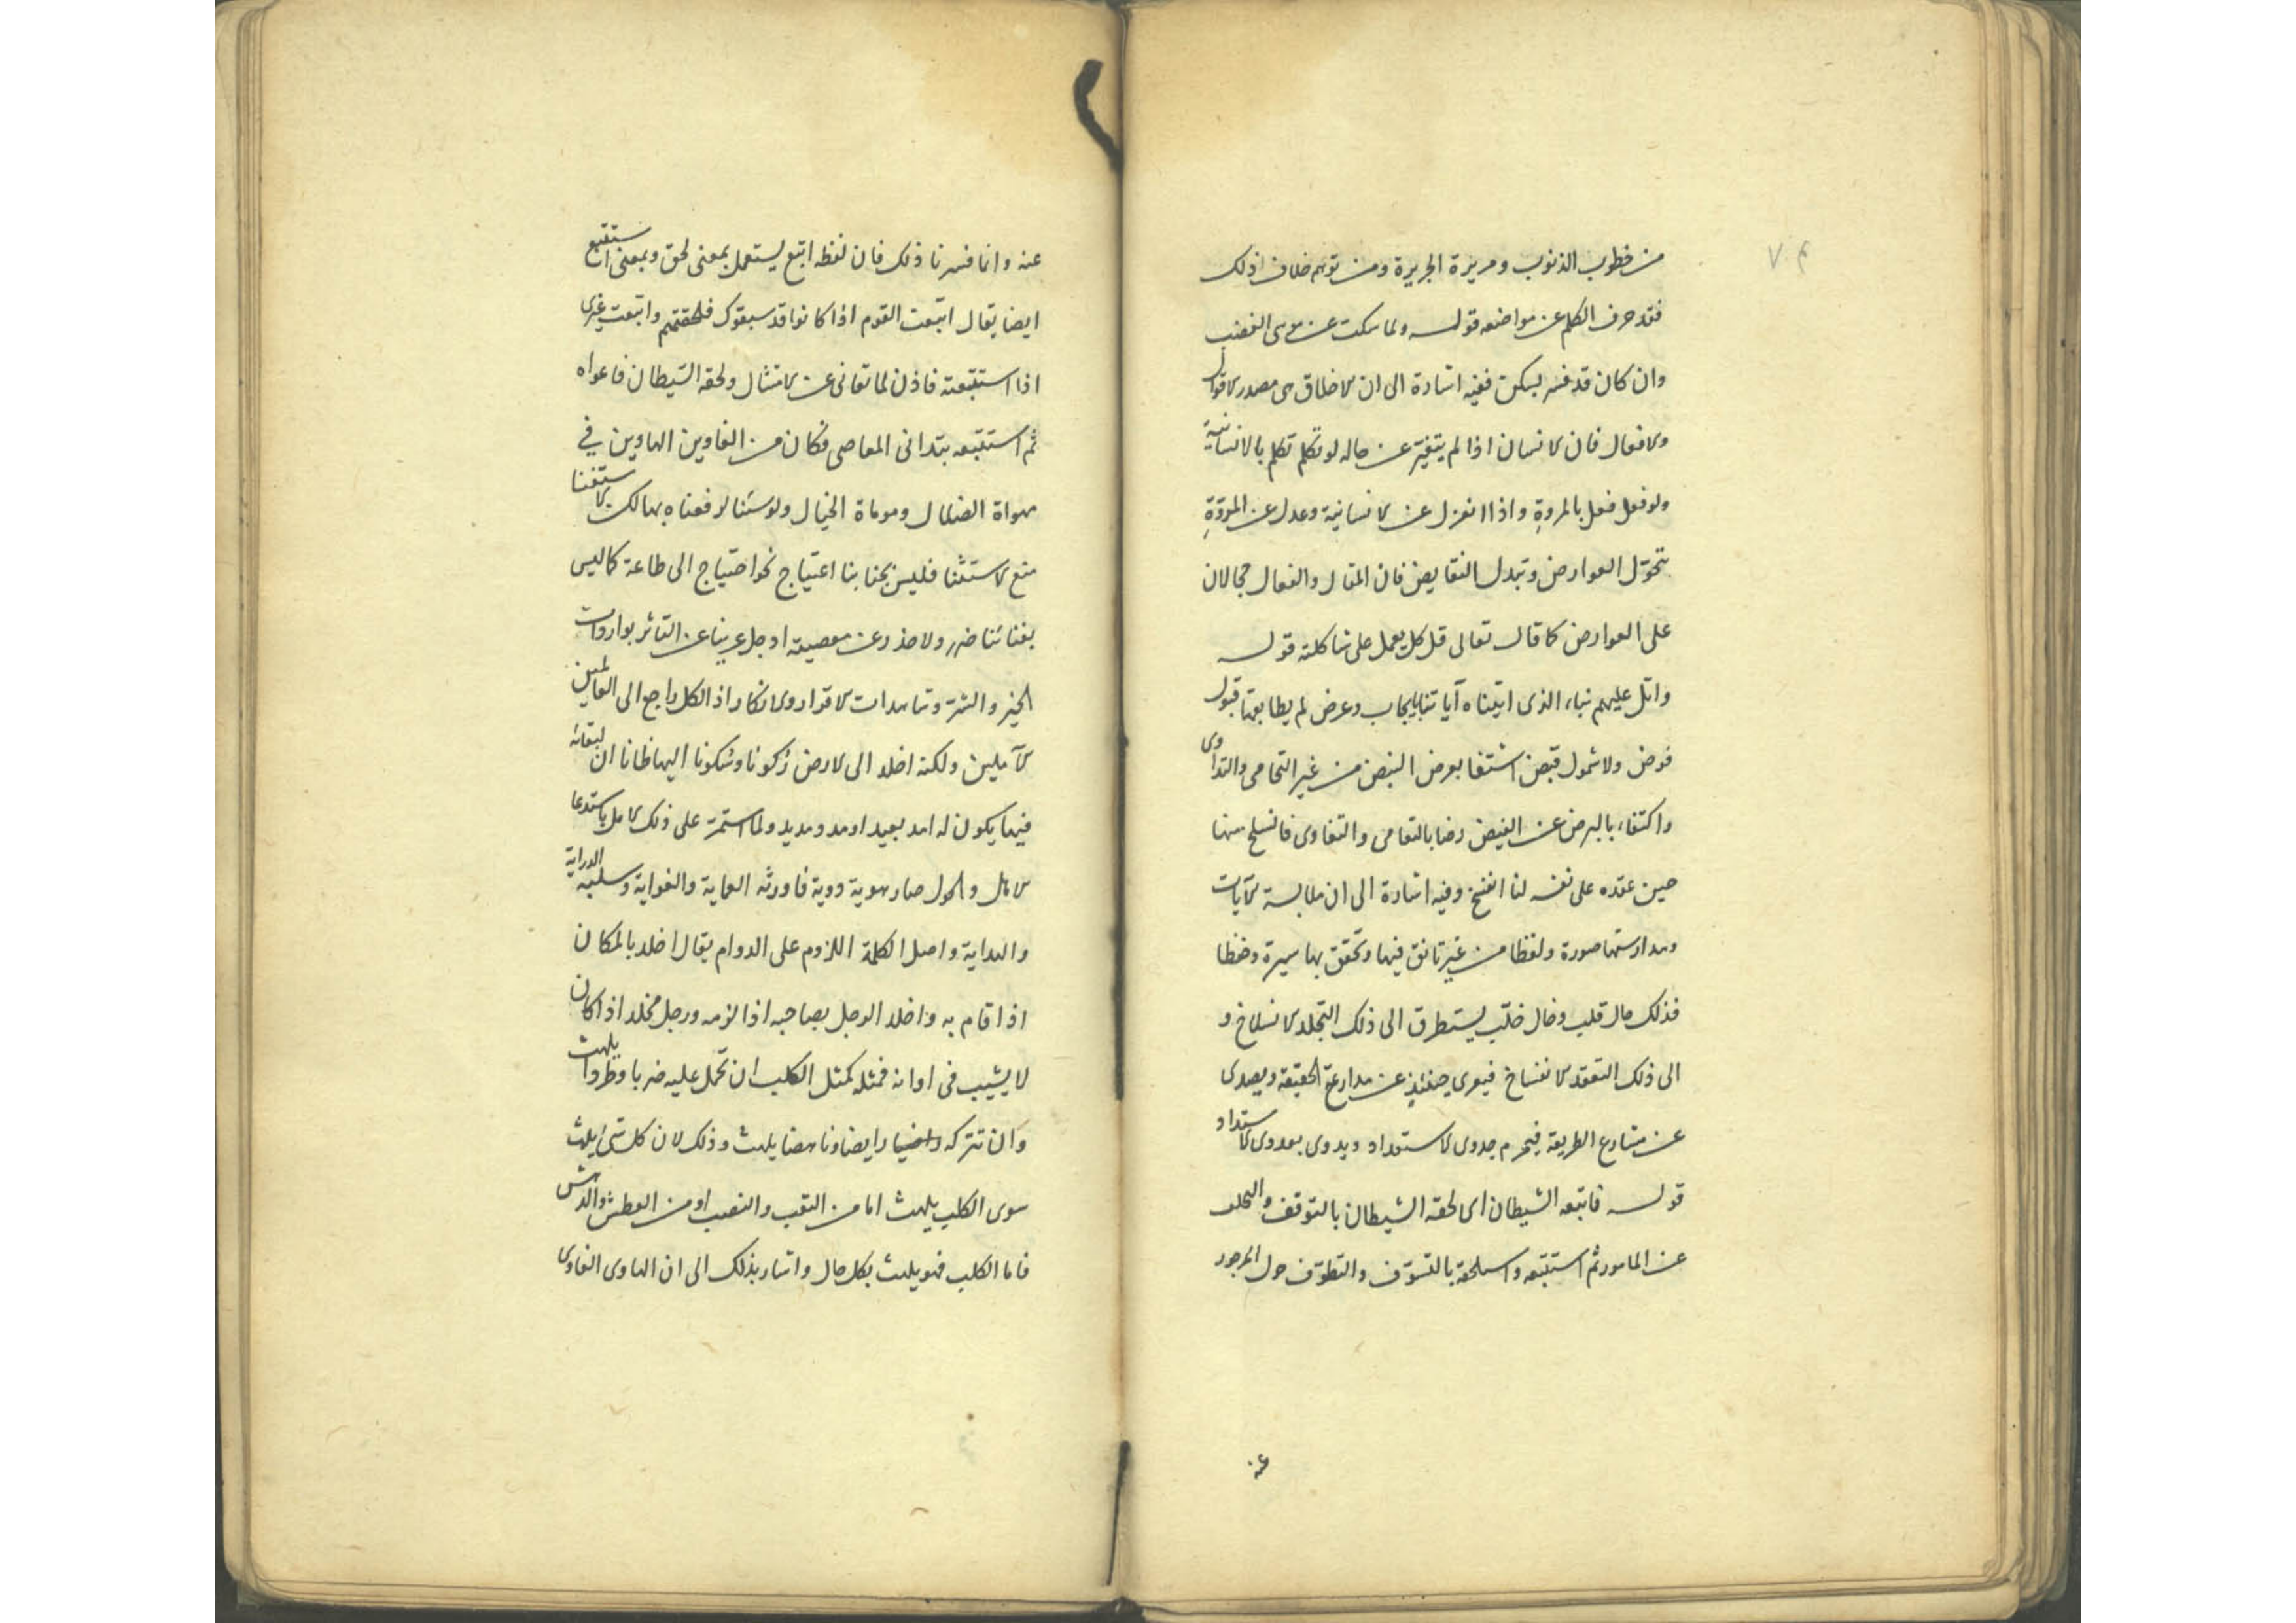 من خطوب الذنوب ومريرة الجريرة ومن توهم خلاف ذلك
فقد حرف الكلم عن مواضعه قوله ولما سكت عن موسى الغضب
وان كان قد فسر بسكن ففيه اشارة الى ان الاخلاق هى مصدر الاقوال
والافعال فان الانسان اذا لم يتغير عن حاله لو تكلم تكلم بالانسانية
ولو فعل فعل بالمروة واذا انعزل عن الانسانية وعدل عن المروّة
تحوّل العوارض وتبدل النقايض فان المقال والفعال مجالان
على العوارض كما قال تعالى قل كل يعمل على شاكلته قوله
واتل عليهم نباء الذى اتيناه آياتنا بايجاب وعرض لم يطابقها قبول
فوض ولا شمول قبض اشتغا بعرض النبض من غير التحامى والتداوى
واكتفاء بالبرض عن الفيض رضا بالتعامى والتغاوى فانسلخ منها
حين عقده على نفسه لنا انفسخ وفيه اشارة الى ان ملابسة الآيات
ومدارستها صورة ولفظا من غير تانق فيها وتحقق بها سيرة وحفظا
فذلك حال قلب وخال خلّب يستطرق الى ذلك التجلد الانسلاخ و
الى ذلك التعقد الانفساخ فيعرى حينئذ عن مدارعة الحقيقة ويصدى
عن مشارع الطريقة فيحرم جدوى الاستعداد ويدوى بعدوى الاستداد
قوله فاتبعه الشيطان اى لحقه الشيطان بالتوقف والتخلف
عن المامور ثم استتبعه واستلحقه بالتسوّف والتطوّف حول المزجور
عنه
عنه وانما فسرنا ذلك فان لفظه اتبع يستعمل بمعنى لحق وبمعنى استتبع
ايضا يقال اتبعت القوم اذا كانوا قد سبقوك فلحقتهم واتبعت غيرى
اذا استتبعته فاذن لما توانى عن الامتثال ولحقه الشيطان فاغواه
ثم استتبعه بتدانى المعاصى فكان من الغاوين الهاوين فى
مهواة الضلال وموماة الخيال ولو شئنا لرفعناه بها لكن الاستغنا
منع الاستثنا فليس بجنابنا اعتياج نحو احتياج الى طاعة كما ليس
بفنائنا ضرر ولا حذر عن معصية اذ جل عزّنا عن التاثر بواردات
الخير والشر وشاهدات الاقرار والانكار اذ الكل راجع الى العالمين
الآملين ولكنه اخلد الى الارض ركونا وسكونا اليها ظانا ان لبقائه
فيها يكون له امد بعيد او مد ومديد ولما استمر على ذلك الامل باستدعا
الامل والحول صار هوية دوية فاورثه العماية والغواية وسلبه الدراية
والهداية واصل الكلمة اللزوم على الدوام يقال اخلد بالمكان
اذا اقام به واخلد الرجل بصاحبه اذا لزمه ورجل مخلد اذا كان
لا يشيب فى اوانه فمثله كمثل الكلب ان تحمل عليه ضربا وطردا يلهث
وان تتركه رايضا وناهضا يلهث وذلك لان كل شئ يلهث
سوى الكلب يلهث اما من التعب والنصب او من العطش والدهش
فاما الكلب فهو يلهث بكل حال واشار بذلك الى ان الهاوى الغاوى